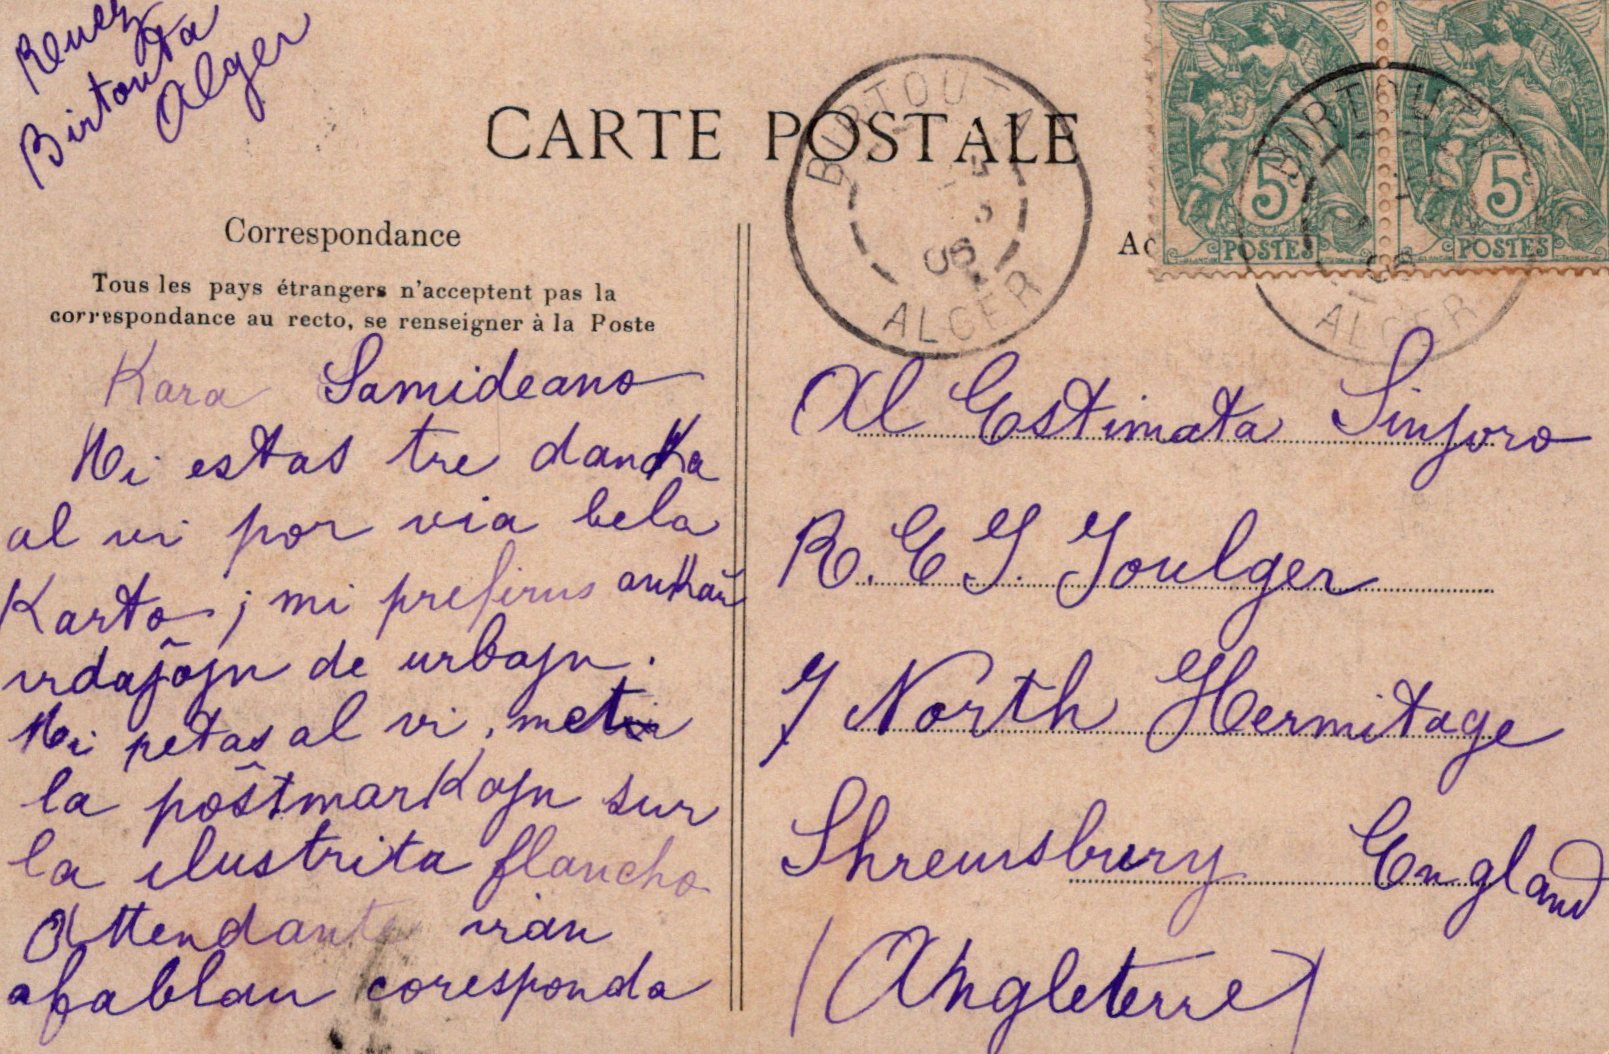 Birtouta
Alger
CARTE POSTALE
BIRTOUTA
06
ALGER
5c
POSTES
5c
POSTES
BIRTOUTA
ALGER
Correspondance
Tous les pays étrangers n'acceptent pas la
correspondance au recto, se renseigner à la Poste
Kara Samideano
Mi estas tre danka
al vi por via bela
Karto; mi preferus ankaŭ
vidaĵojn de urbojn.
Mi petas al vi, meti
la poŝtmarkojn sur
la ilustrita flancho
Attendante vian
afablan coresponda
Al Estimata Sinjoro
R. E. G. Foulger
7 North Hermitage
Shrewsbury England
(Angleterre)